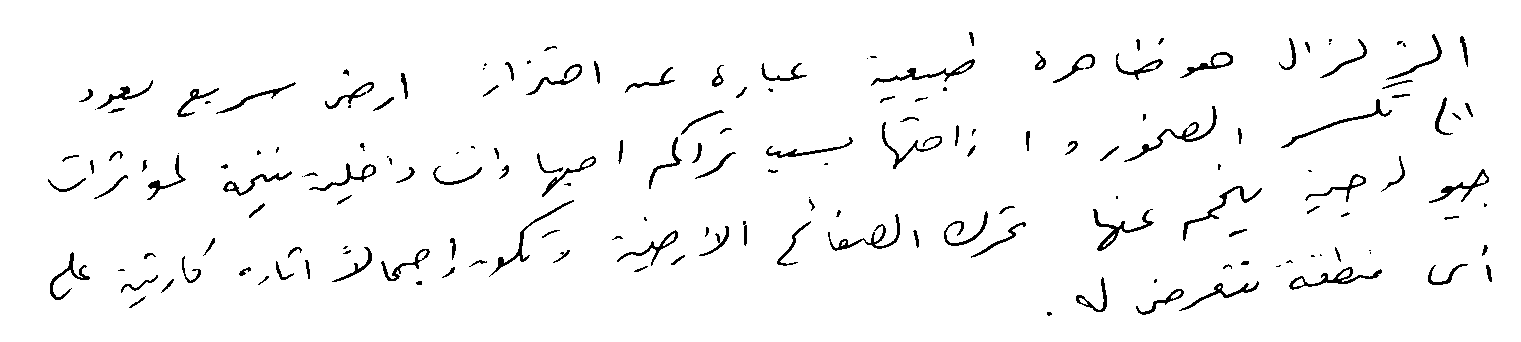 الزلزال هو ظاهرة طبيعية عبارة عن اهتزاز ارض سريع يعود
الى تكسر الصخور و ازاحتها بسبب تراكم اجهادات داخلية نتيجة لمؤثرات
جيولوجية ينجم عنها تحرك الصفائح الأرضية وتكون إجمالاً اثاره كارثية على
أى منطقة تتعرض له .